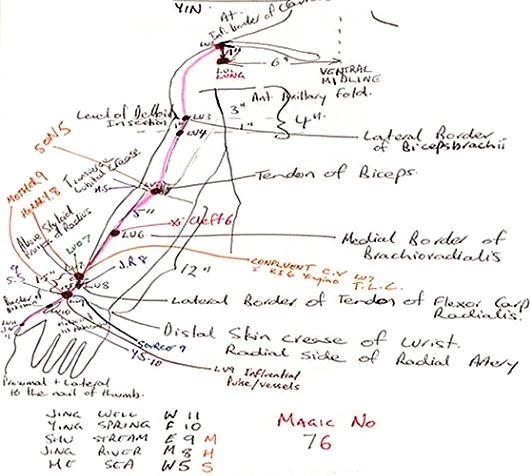 YIN.
At.
Inf. border of Clavicle
1"
LU1
LUNG
6"
VENTRAL
MIDLINE
Ant Axillary fold.
3"
4".
1"
Level of Deltoid
Insertion
LU3
LU4
Lateral Border
of Bicepsbrachii
SON 5
Transverse
Cubital Crease
H.S
Tendon of Biceps.
MOTHER 9
5"
Xi Cleft 6
LU6
Medial Border of
Brachioradialis
Above Styloid
Process of Radius
LUO7
CONFLUENT C.V LU7
T.L.C.
12"
J.R 8
LU8
Lateral Border of Tendon of Flexor Carp
Radialis.
Distal Skin crease of Wrist.
Radial Side of Radial Artery
SOURCE 9
YS.10
LU9 Influential
Pulse/vessels
LU10
Proximal + Lateral
to the nail of thumb.
JING WELL W 11
YING SPRING F 10
SHU STREAM E 9 M
JING RIVER M 8 H
HE SEA W5 S
MAGIC No
76